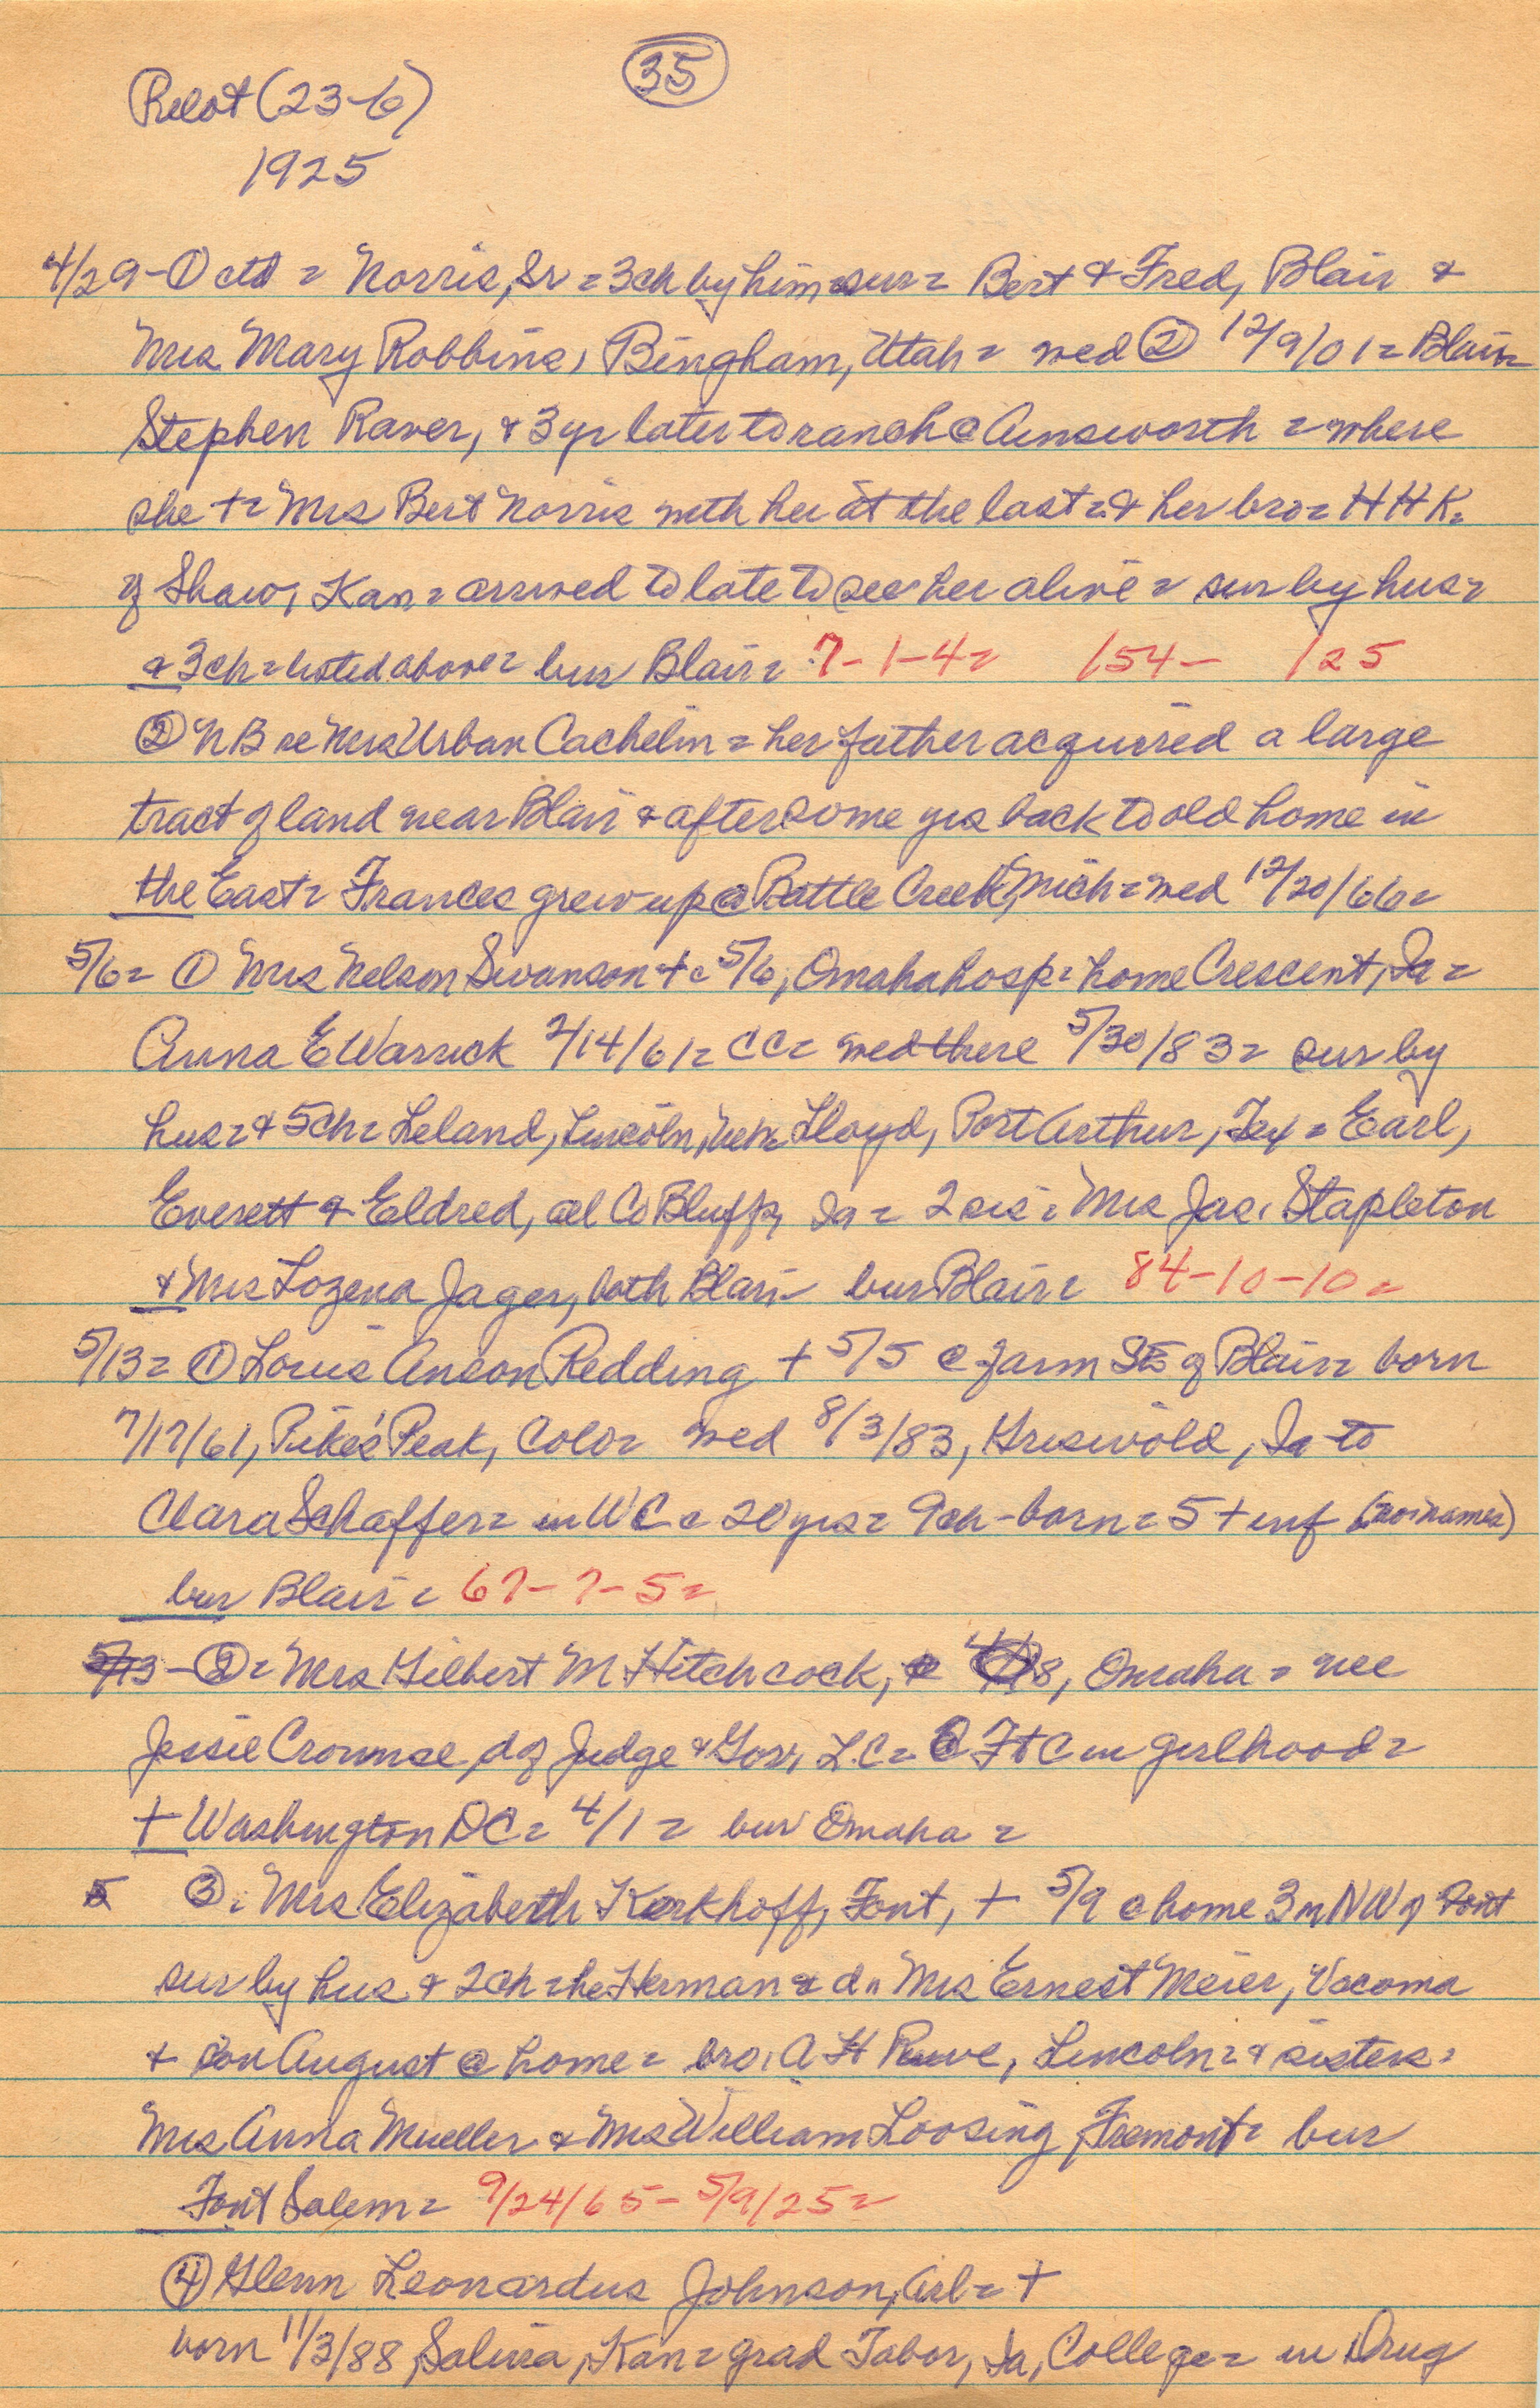 35
Pilot (23-6)
1925
4/29-① ctd = Norris, Sr = 3ch by him = sur = Bert & Fred, Blair &
Mrs Mary Robbins, Bingham, Utah = wed ② 12/9/01 = Blair =
Stephen Raver, & 3 yr later to ranch @ Ainsworth = where
she + = Mrs Bert Norris with her at the last = & her bro = H H K =
of Shaw, Kan = arrived to late to see her alive = sur by hus =
& 3ch = listed above = bur Blair = 7-1-4= 154- 125
② NB re Mrs Urban Cachelin = her father acquired a large
tract of land near Blair & after some yrs back to old home in
the East = Frances grew up @ Battle Creek, Mich = wed 12/20/66 =
5/6 = ① Mrs Nelson Swanson + = 5/6, Omaha hosp = home Crescent, Ia =
Anna E Warrick 2/14/61 = CC = wed there 5/30/83 = sur by
hus = & 5ch = Leland, Lincoln, Neb = Lloyd, Port Arthur, Tex = Earl,
Everett & Eldred, all Co Bluffs, Ia = 2 sis = Mrs Jas. Stapleton
& Mrs Lozena Jager, both Blair bur Blair = 84-10-10 =
5/13 = ① Louis Anson Redding + 5/5 @ farm of Blair = born
7/17/61, Pike's Peak, Colo = wed 8/3/83, Griswold, Ia to
Clara Schaffer = in WC = 20 yrs = 9ch - born = 5 + inf (no names)
bur Blair = 67-7-5 =
5/13 - ② = Mrs Gilbert M Hitchcock, Omaha = nee
Jessie Crounse, d of Judge & Gov, L.C = @ Ft C in girlhood =
+ Washington DC = 4/1 = bur Omaha =
5 ③. Mrs Elizabeth Kerkhoff, Font, + 5/9 @ home 3m NW of Font
sur by hus & 2ch = he Herman & d = Mrs Ernest Meier, Vacoma
& son August @ home = bro. A H, Lincoln = & sisters =
Mrs Anna Mueller & Mrs William Loosing, Fremont = bur
Font Salem = 9/24/65 - 5/9/25 =
④ Glenn Leonardus Johnson, Arl = +
born 11/3/88, Salina, Kan = grad Tabor, Ia, College = in Drug